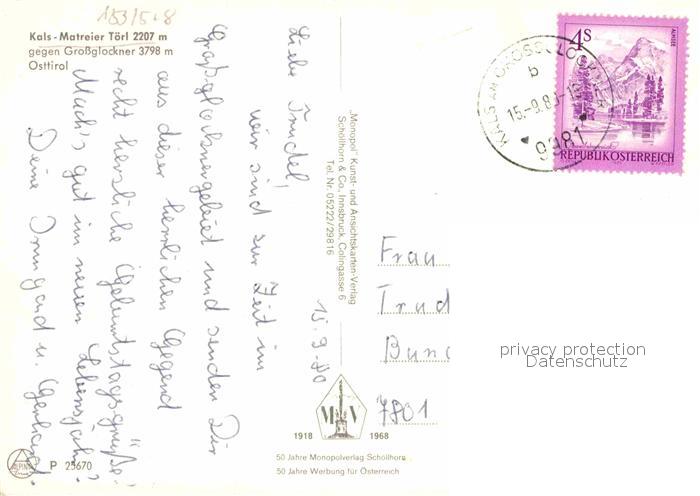 183/5.8
Kals-Matreier Törl 2207 m
gegen Großglockner 3798 m
Osttirol
15.9.80
Liebe Trudel,
wir sind zur Zeit im
Großglocknergebiet und senden Dir
aus dieser herrlichen Gegend
recht herzliche Geburtstagsgrüße.
Mach's gut im neuen Lebensjahr.
Deine Irmgard u.
"Monopol" Kunst- und Ansichtskarten-Verlag
Schöllhorn & Co., Innsbruck, Colingasse 6
Tel. Nr. 05222/29816
4S
ALMSEE
REPUBLIK ÖSTERREICH
KALS AM GROSSGLOCKNER
b
15.-9.80-
9981
Frau
Trud
Bunc
7801
privacy protection
Datenschutz
M V
1918 1968
50 Jahre Monopolverlag Schöllhorn
50 Jahre Werbung für Österreich
ALPINA
P 25670